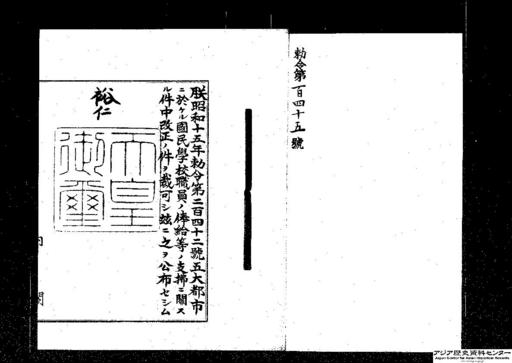 勅令第百四十五號
朕昭和十五年勅令第二百四十二號五大都市
ニ於ケル國民學校職員ノ俸給等ノ支拂ニ關ス
ル件中改正ノ件ヲ裁可シ玆ニ之ヲ公布セシム
裕仁
天皇
御璽
内閣
アジア歴史資料センター
Japan Center for Asian Historical Records